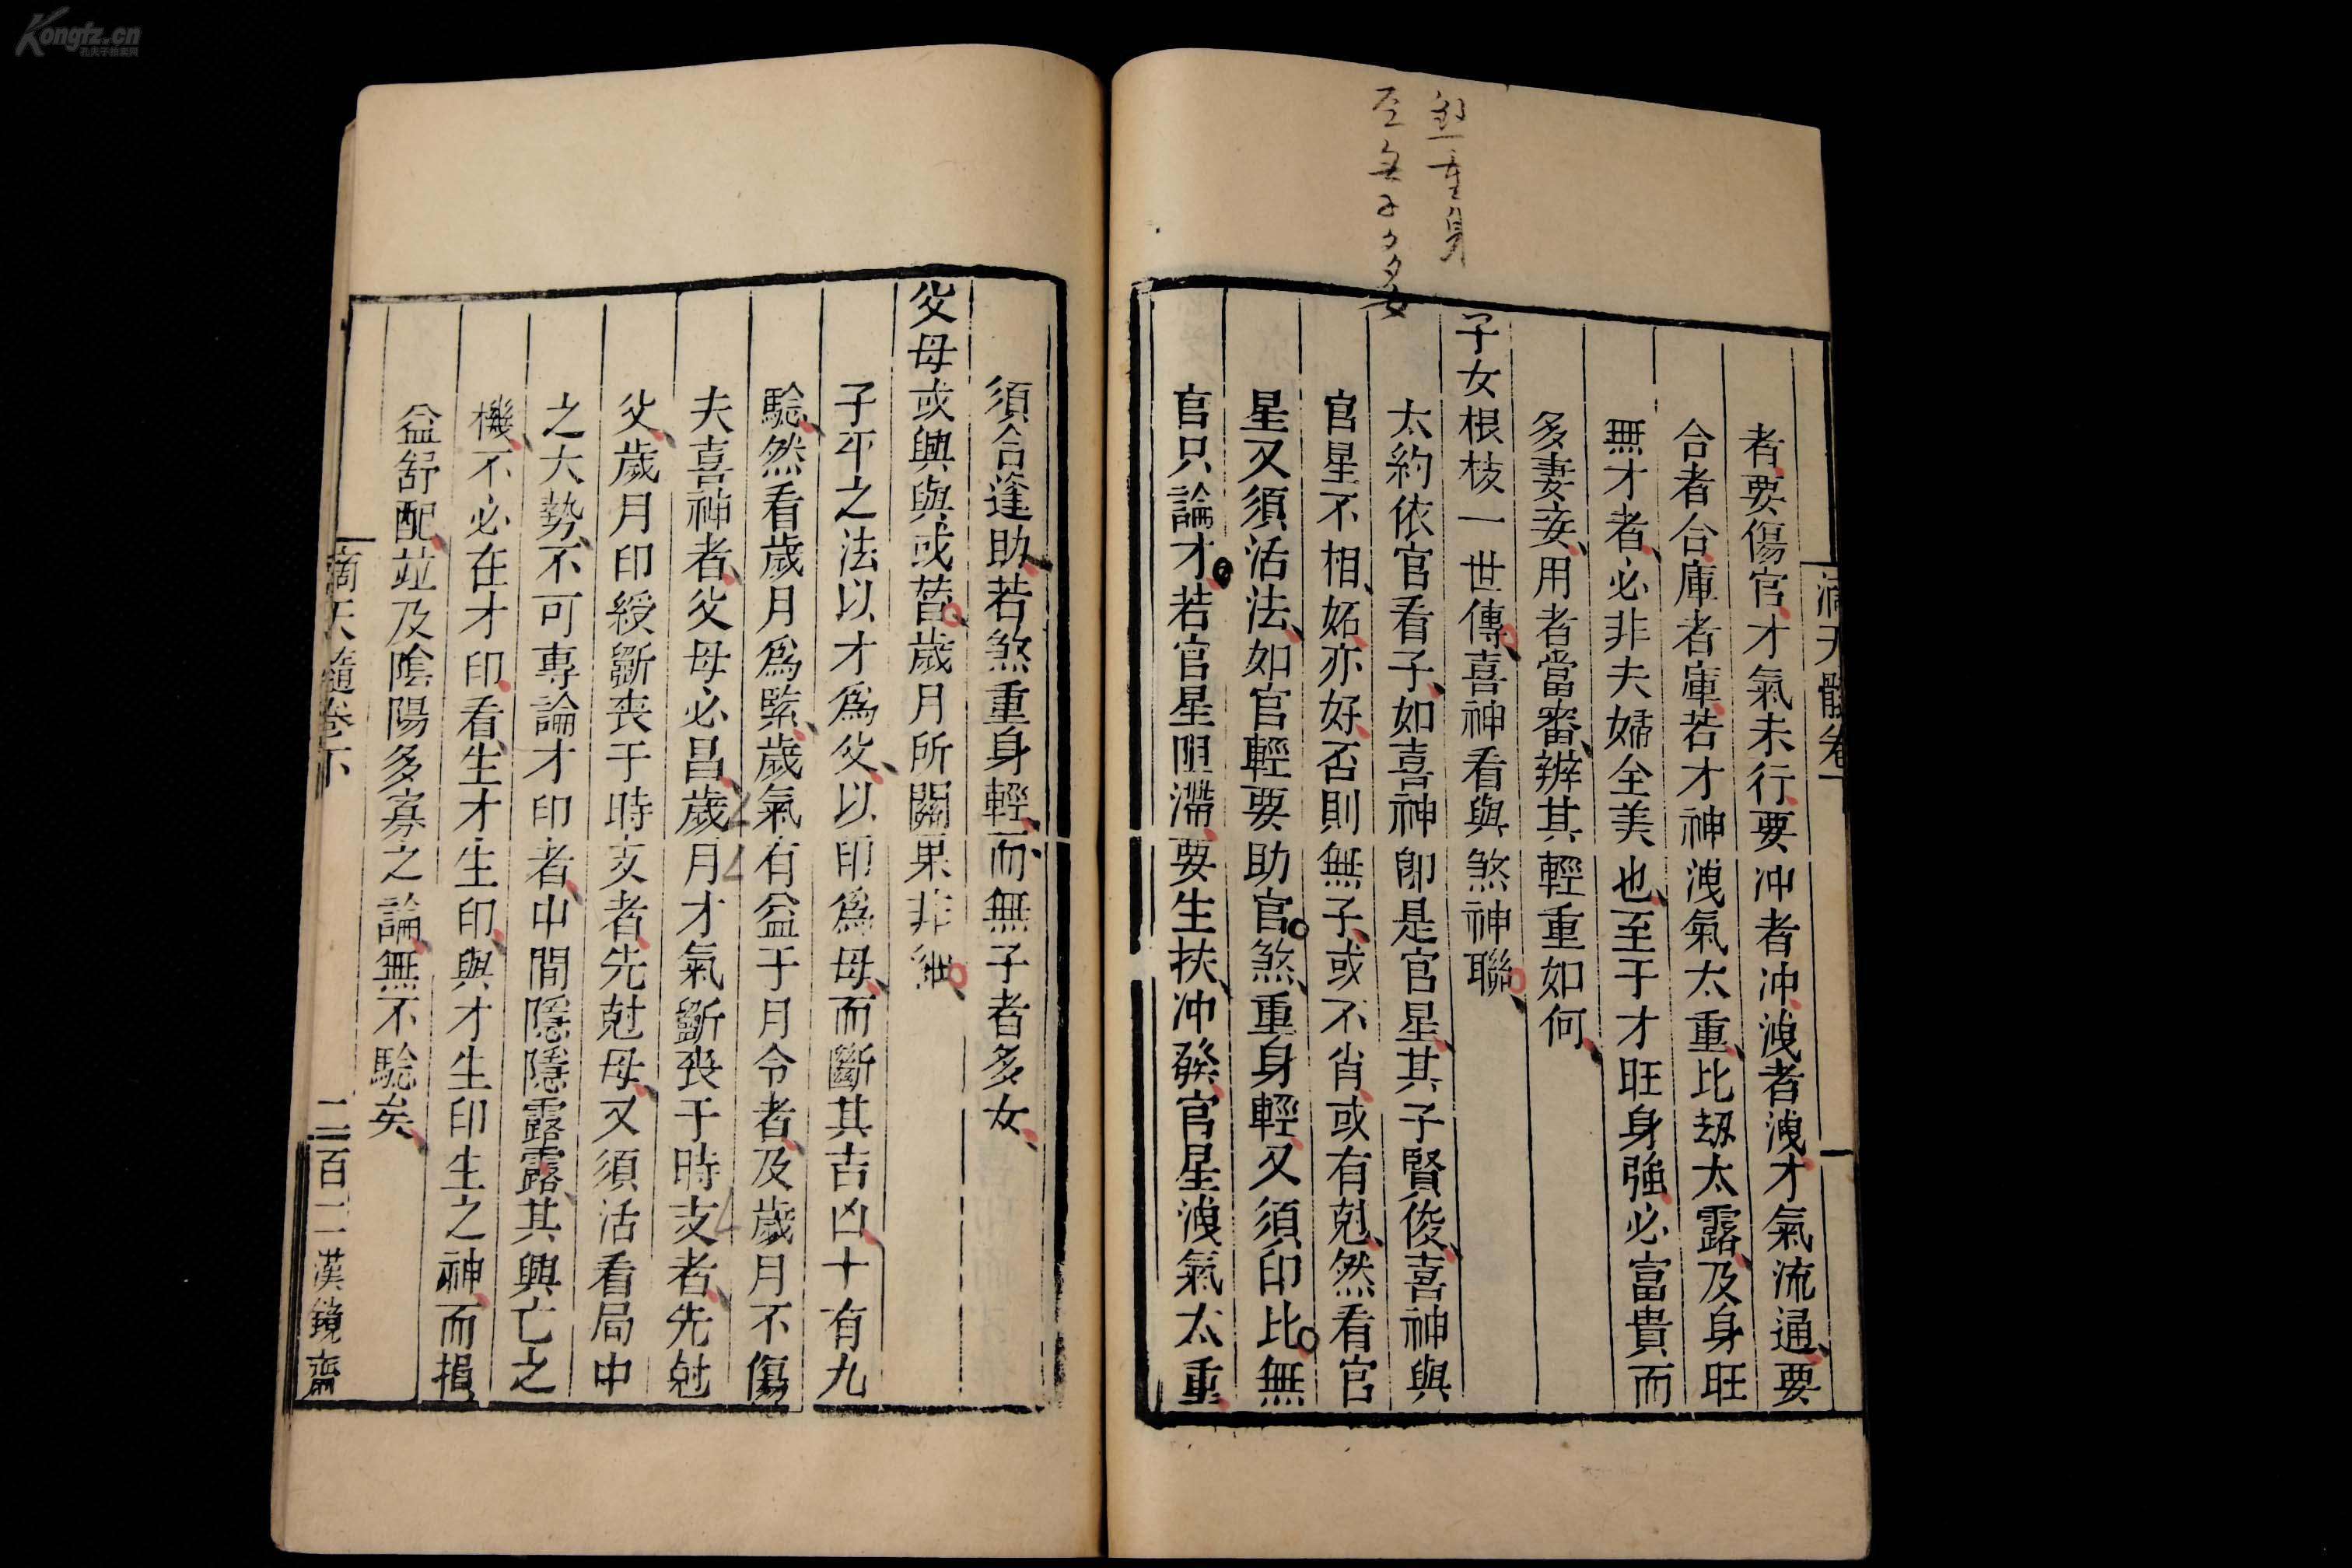 Kongfz.cn
孔夫子舊書网
煞重身
至無子多女
滴天髓卷下
者要傷官才氣未行要冲者冲洩者洩才氣流通要
合者合庫者庫若才神洩氣太重比刼太露及身旺
無才者必非夫婦全美也至于才旺身強必富貴而
多妻妾用者當審辨其輕重如何
子女根枝一世傳喜神看與煞神聯
太約依官看子如喜神卽是官星其子賢俊喜神與
官星不相妬亦好否則無子或不肖或有尅然看官
星又須活法如官輕要助官煞重身輕又須印比無
官只論才若官星阻滯要生扶冲發官星洩氣太重
須合逢助若煞重身輕而無子者多女
父母或興與或替歲月所關果非細
子平之法以才爲父以印爲母而斷其吉凶十有九
騐然看歲月爲緊歲氣有益于月令者及歲月不傷
夫喜神者父母必昌歲月才氣斷丧于時支者先尅
父歲月印綬斷丧于時支者先尅母又須活看局中
之大勢不可專論才印者中間隱隱露露其興亡之
機不必在才印看生才生印與才生印生之神而損
益舒配竝及陰陽多寡之論無不騐矣
滴天髓卷下 二百二 漢鏡齋